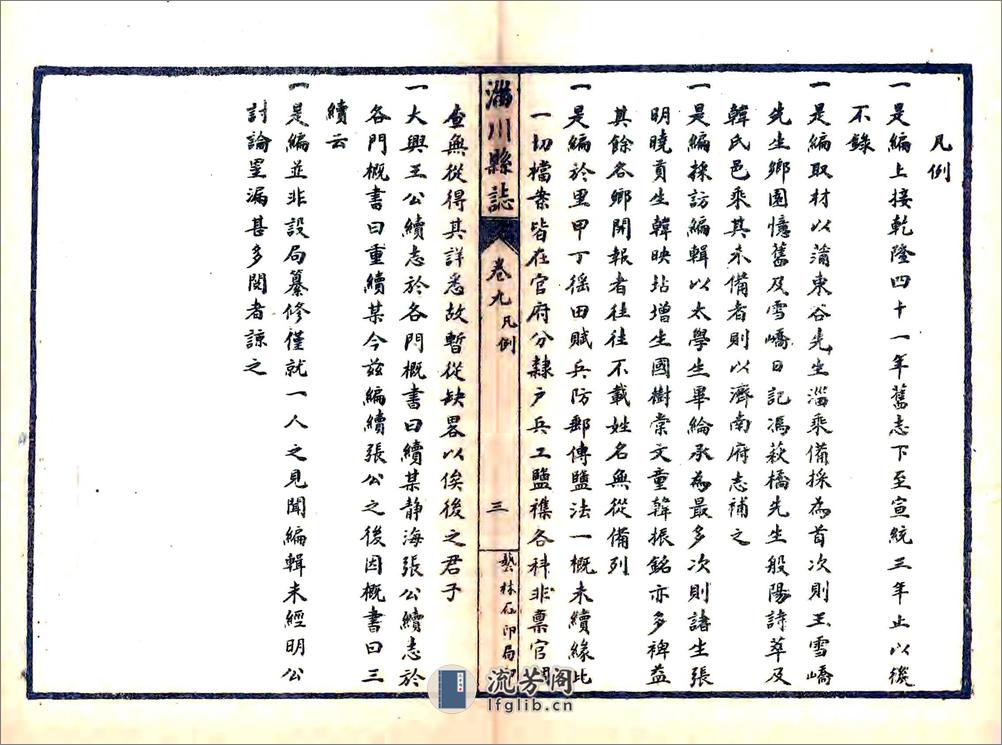 凡例
一是編上接乾隆四十一年舊志下至宣統三年止以後
不錄
一是編取材以蒲東谷先生淄乘備採為首次則王雪嶠
先生鄉園憶舊及雪嶠日記馮萩橋先生般陽詩萃及
韓氏邑乘其未備者則以濟南府志補之
一是編採訪編輯以太學生畢綸承為最多次則諸生張
明曉貢生韓映坫增生國樹棠文童韓振銘亦多裨益
其餘各鄉開報者往往不載姓名無從備列
一是編於里甲丁徭田賦兵防郵傳鹽法一概未續緣此
一切檔案皆在官府分隸户兵工鹽襍各科非稟官調
淄川縣誌
卷九
凡例
三
藝林石印局印
查無從得其詳悉故暫從缺畧以俟後之君子
一大興王公續志於各門概書曰續某静海張公續志於
各門概書曰重續某今茲編續張公之後因概書曰三
續云
一是編並非設局纂修僅就一人之見聞編輯未經明公
討論罣漏甚多閱者諒之
流芳阁
lfglib.cn